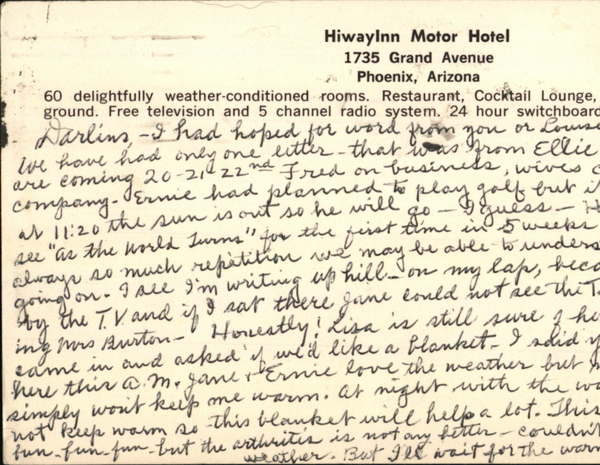 HiwayInn Motor Hotel
1735 Grand Avenue
Phoenix, Arizona
60 delightfully weather-conditioned rooms. Restaurant, Cocktail Lounge,
ground. Free television and 5 channel radio system. 24 hour switchboard
Darlins, - I had hoped for word from you or Louise
We have had only one letter - that was from Ellie
are coming 20-21-22nd Fred on business, wives
company. Ernie had planned to play golf but
at 11:20 the sun is out so he will go - I guess -
see "As the World Turns" for the first time in 5 weeks
always so much repetition we may be able to unders
going on. I see I'm writing up hill - on my lap, beca
by the T.V. and if I sat there Jane could not see the T.
ing Mrs Burton - Honestly! Lisa is still sure
came in and asked if we'd like a blanket - I said
here this A.M. Jane + Ernie love the weather but
simply won't keep me warm. At night with the
not keep warm so this blanket will help a lot. This
fun-fun-fun-but the arthritis is not any better - couldn't
weather. But I'll wait for the warm